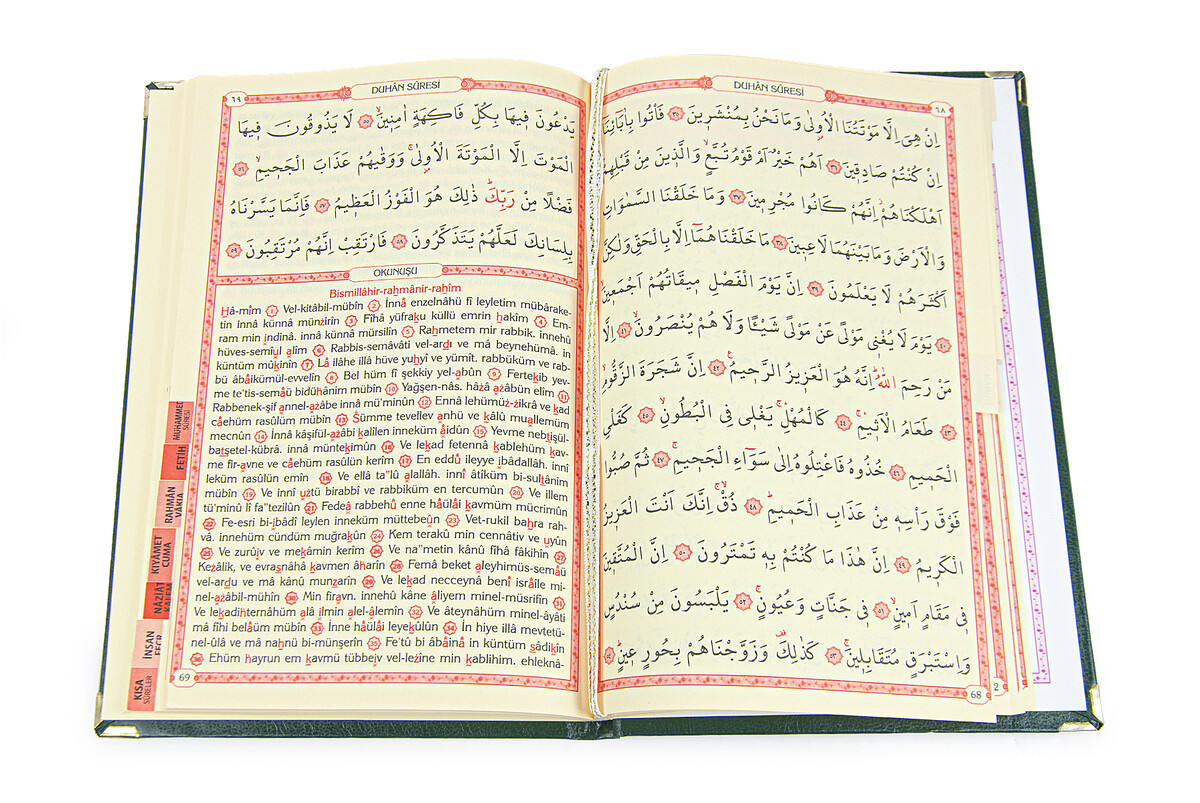 DUHÂN SÛRESİ
٦٨
اِنْ هِيَ اِلَّا مَوْتَتُنَا الْاُولٰى وَمَا نَحْنُ بِمُنْشَرٖينَ ٣٥ فَأْتُوا بِاٰبَٓائِنَٓا
اِنْ كُنْتُمْ صَادِقٖينَ ٣٦ اَهُمْ خَيْرٌ اَمْ قَوْمُ تُبَّعٍ وَالَّذٖينَ مِنْ قَبْلِهِمْ
اَهْلَكْنَاهُمْ اِنَّهُمْ كَانُوا مُجْرِمٖينَ ٣٧ وَمَا خَلَقْنَا السَّمٰوَاتِ
وَالْاَرْضَ وَمَا بَيْنَهُمَا لَاعِبٖينَ ٣٨ مَا خَلَقْنَاهُمَٓا اِلَّا بِالْحَقِّ وَلٰكِنَّ
اَكْثَرَهُمْ لَا يَعْلَمُونَ ٣٩ اِنَّ يَوْمَ الْفَصْلِ مٖيقَاتُهُمْ اَجْمَعٖينَ
٤٠ يَوْمَ لَا يُغْنٖي مَوْلًى عَنْ مَوْلًى شَيْـًٔا وَلَا هُمْ يُنْصَرُونَ ٤١ اِلَّا
مَنْ رَحِمَ اللّٰهُ اِنَّهُ هُوَ الْعَزٖيزُ الرَّحٖيمُ ٤٢ اِنَّ شَجَرَةَ الزَّقُّومِ
٤٣ طَعَامُ الْاَثٖيمِ ٤٤ كَالْمُهْلِ يَغْلٖي فِي الْبُطُونِ ٤٥ كَغَلْيِ
الْحَمٖيمِ ٤٦ خُذُوهُ فَاعْتِلُوهُ اِلٰى سَوَٓاءِ الْجَحٖيمِ ٤٧ ثُمَّ صُبُّوا
فَوْقَ رَأْسِهٖ مِنْ عَذَابِ الْحَمٖيمِ ٤٨ ذُقْ اِنَّكَ اَنْتَ الْعَزٖيزُ
الْكَرٖيمُ ٤٩ اِنَّ هٰذَا مَا كُنْتُمْ بِهٖ تَمْتَرُونَ ٥٠ اِنَّ الْمُتَّقٖينَ
فٖي مَقَامٍ اَمٖينٍ ٥١ فٖي جَنَّاتٍ وَعُيُونٍ ٥٢ يَلْبَسُونَ مِنْ سُنْدُسٍ
وَاِسْتَبْرَقٍ مُتَقَابِلٖينَ ٥٣ كَذٰلِكَ وَزَوَّجْنَاهُمْ بِحُورٍ عٖينٍ ٥٤
68
2
DUHÂN SÛRESİ
٦٩
يَدْعُونَ فٖيهَا بِكُلِّ فَاكِهَةٍ اٰمِنٖينَ ٥٥ لَا يَذُوقُونَ فٖيهَا
الْمَوْتَ اِلَّا الْمَوْتَةَ الْاُولٰى وَوَقٰيهُمْ عَذَابَ الْجَحٖيمِ ٥٦
فَضْلًا مِنْ رَبِّكَ ذٰلِكَ هُوَ الْفَوْزُ الْعَظٖيمُ ٥٧ فَاِنَّمَا يَسَّرْنَاهُ
بِلِسَانِكَ لَعَلَّهُمْ يَتَذَكَّرُونَ ٥٨ فَارْتَقِبْ اِنَّهُمْ مُرْتَقِبُونَ ٥٩
OKUNUŞU
Bismillâhir-rahmânir-rahîm
Hâ-mîm 1 Vel-kitâbil-mübîn 2 İnnâ enzelnâhü fî leyletim mübârake-
tin innâ künnâ münzirîn 3 Fîhâ yüfraku küllü emrin hakîm 4 Em-
ram min ındinâ. innâ künnâ mürsilîn 5 Rahmetem mir rabbik. innehû
hüves-semîul alîm 6 Rabbis-semâvâti vel-ardı ve mâ beynehümâ. in
küntüm mûkinîn 7 Lâ ilâhe illâ hüve yuhyî ve yümît. rabbüküm ve rab-
bü âbâikümül-evvelîn 8 Bel hüm fî şekkiy yel-abûn 9 Fertekib yev-
me te'tis-semâü bidühânim mübîn 10 Yağşen-nâs. hâzâ azâbün elîm 11
Rabbenek-şif annel-azâbe innâ mü'minûn 12 Ennâ lehümüz-zikrâ ve kad
câehüm rasûlüm mübîn 13 Sümme tevellev anhü ve kâlû muallemüm
mecnûn 14 İnnâ kâşifül-azâbi kalîlen inneküm âidûn 15 Yevme nebtışül-
batşetel-kübrâ. innâ müntekimûn 16 Ve lekad fetennâ kablehüm kav-
me fir-avne ve câehüm rasûlün kerîm 17 En eddû ileyye ıbâdallâh. innî
leküm rasûlün emîn 18 Ve ellâ ta"lû alallâh. innî âtîküm bi-sultânim
mübîn 19 Ve innî uztü birabbî ve rabbiküm en tercumûn 20 Ve illem
tü'minû lî fa"tezilûn 21 Fedeâ rabbehû enne hâülâi kavmüm mücrimûn
22 Fe-esri bi-ıbâdî leylen inneküm müttebeûn 23 Vet-rukil bahra rah-
vâ. innehüm cündüm muğrakûn 24 Kem terakû min cennâtiv ve uyûn
25 Ve zurûıv ve mekâmin kerîm 26 Ve na"metin kânû fîhâ fâkihîn 27
Kezâlik, ve evrasnâhâ kavmen âharîn 28 Femâ beket aleyhimüs-semâü
vel-ardu ve mâ kânû munzarîn 29 Ve lekad necceynâ benî isrâîle mi-
nel-azâbil-mühîn 30 Min firavn. innehû kâne âliyem minel-müsrifîn 31
Ve lekadihternâhüm alâ ılmin alel-âlemîn 32 Ve âteynâhüm minel-âyâti
mâ fîhi belâüm mübîn 33 İnne hâülâi leyekûlûn 34 İn hiye illâ mevtetü-
nel-ûlâ ve mâ nahnü bi-münşerîn 35 Fe'tû bi âbâinâ in küntüm sâdikîn
36 Ehüm hayrun em kavmü tübbeıv vel-lezîne min kablihim. ehleknâ-
69
MUHAMMED
SÛRESİ
FETİH
RAHMÂN
VÂKIA
KIYÂMET
CUMA
NÂZİÂT
İNSAN
FECR
KISA
SÛRELER